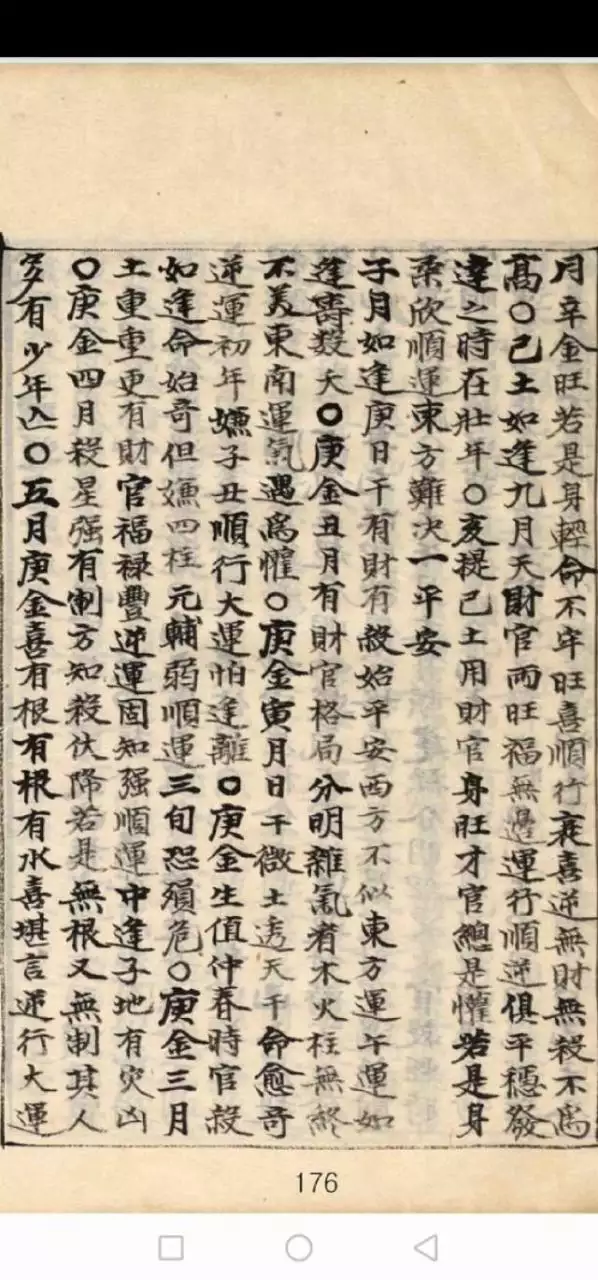 月辛金旺若是身輕命不牢旺喜順行衰喜逆無財無殺不爲
高〇己土如逢九月天財官両旺福無邉運行順逆俱平穩發
達之時在壯年〇亥提己土用財官身旺才官總是懽若是身
柔欣順運東方難次一平安
子月如逢庚日干有財有殺始平安西方不似東方運午運如
逢壽數夭〇庚金丑月有財官格局分明雜氣者木火柱無終
不美東南運氣遇爲懽〇庚金寅月日干微土透天干命愈竒
逆運初年嫌子丑順行大運怕逢離〇庚金生值仲春時官殺
如逢命始竒但嫌四柱元輔弱順運三旬恐殞危〇庚金三月
土重重更有財官福禄豐逆運固知强順運中逢子地有灾凶
〇庚金四月殺星强有制方知殺伏降若是無根又無制其人
多有少年亾〇五月庚金喜有根有根有水喜堪言逆行大運
176